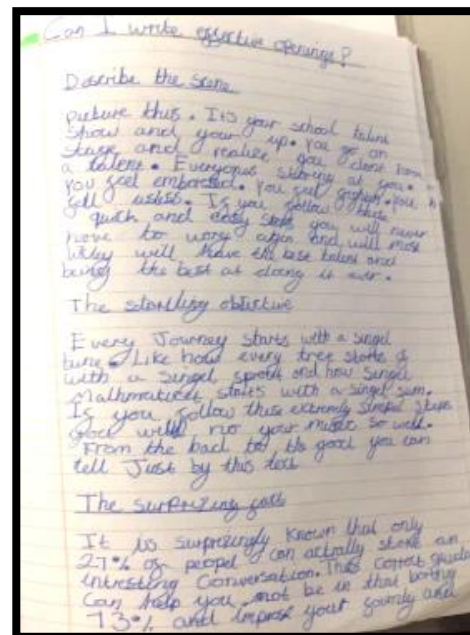 Can I write effective openings?
Describe the scene
Picture this. Its your school talent
show and your up. You go on
stage and realize you dont have
a talent. Everyones staring at you.
you feel . You feel . You
feel . If you follow these
quick and easy steps you will never
have to worry again and will most
likley will have the best talent and
being the best at doing it ever.
The objective
Every Journey starts with a singel
tune. Like how every tree starts
with a singel sprout and how singel
starts with a singel sum.
If you follow these extremly simpel steps
you will your music so well.
From the bad to its good you can
tell Just by this text
The surprizing fact
It is surprizingly known that only
27% of peopel can actually start an
intresting Conversation. This
Can help you not be in that boring
73% and your family and